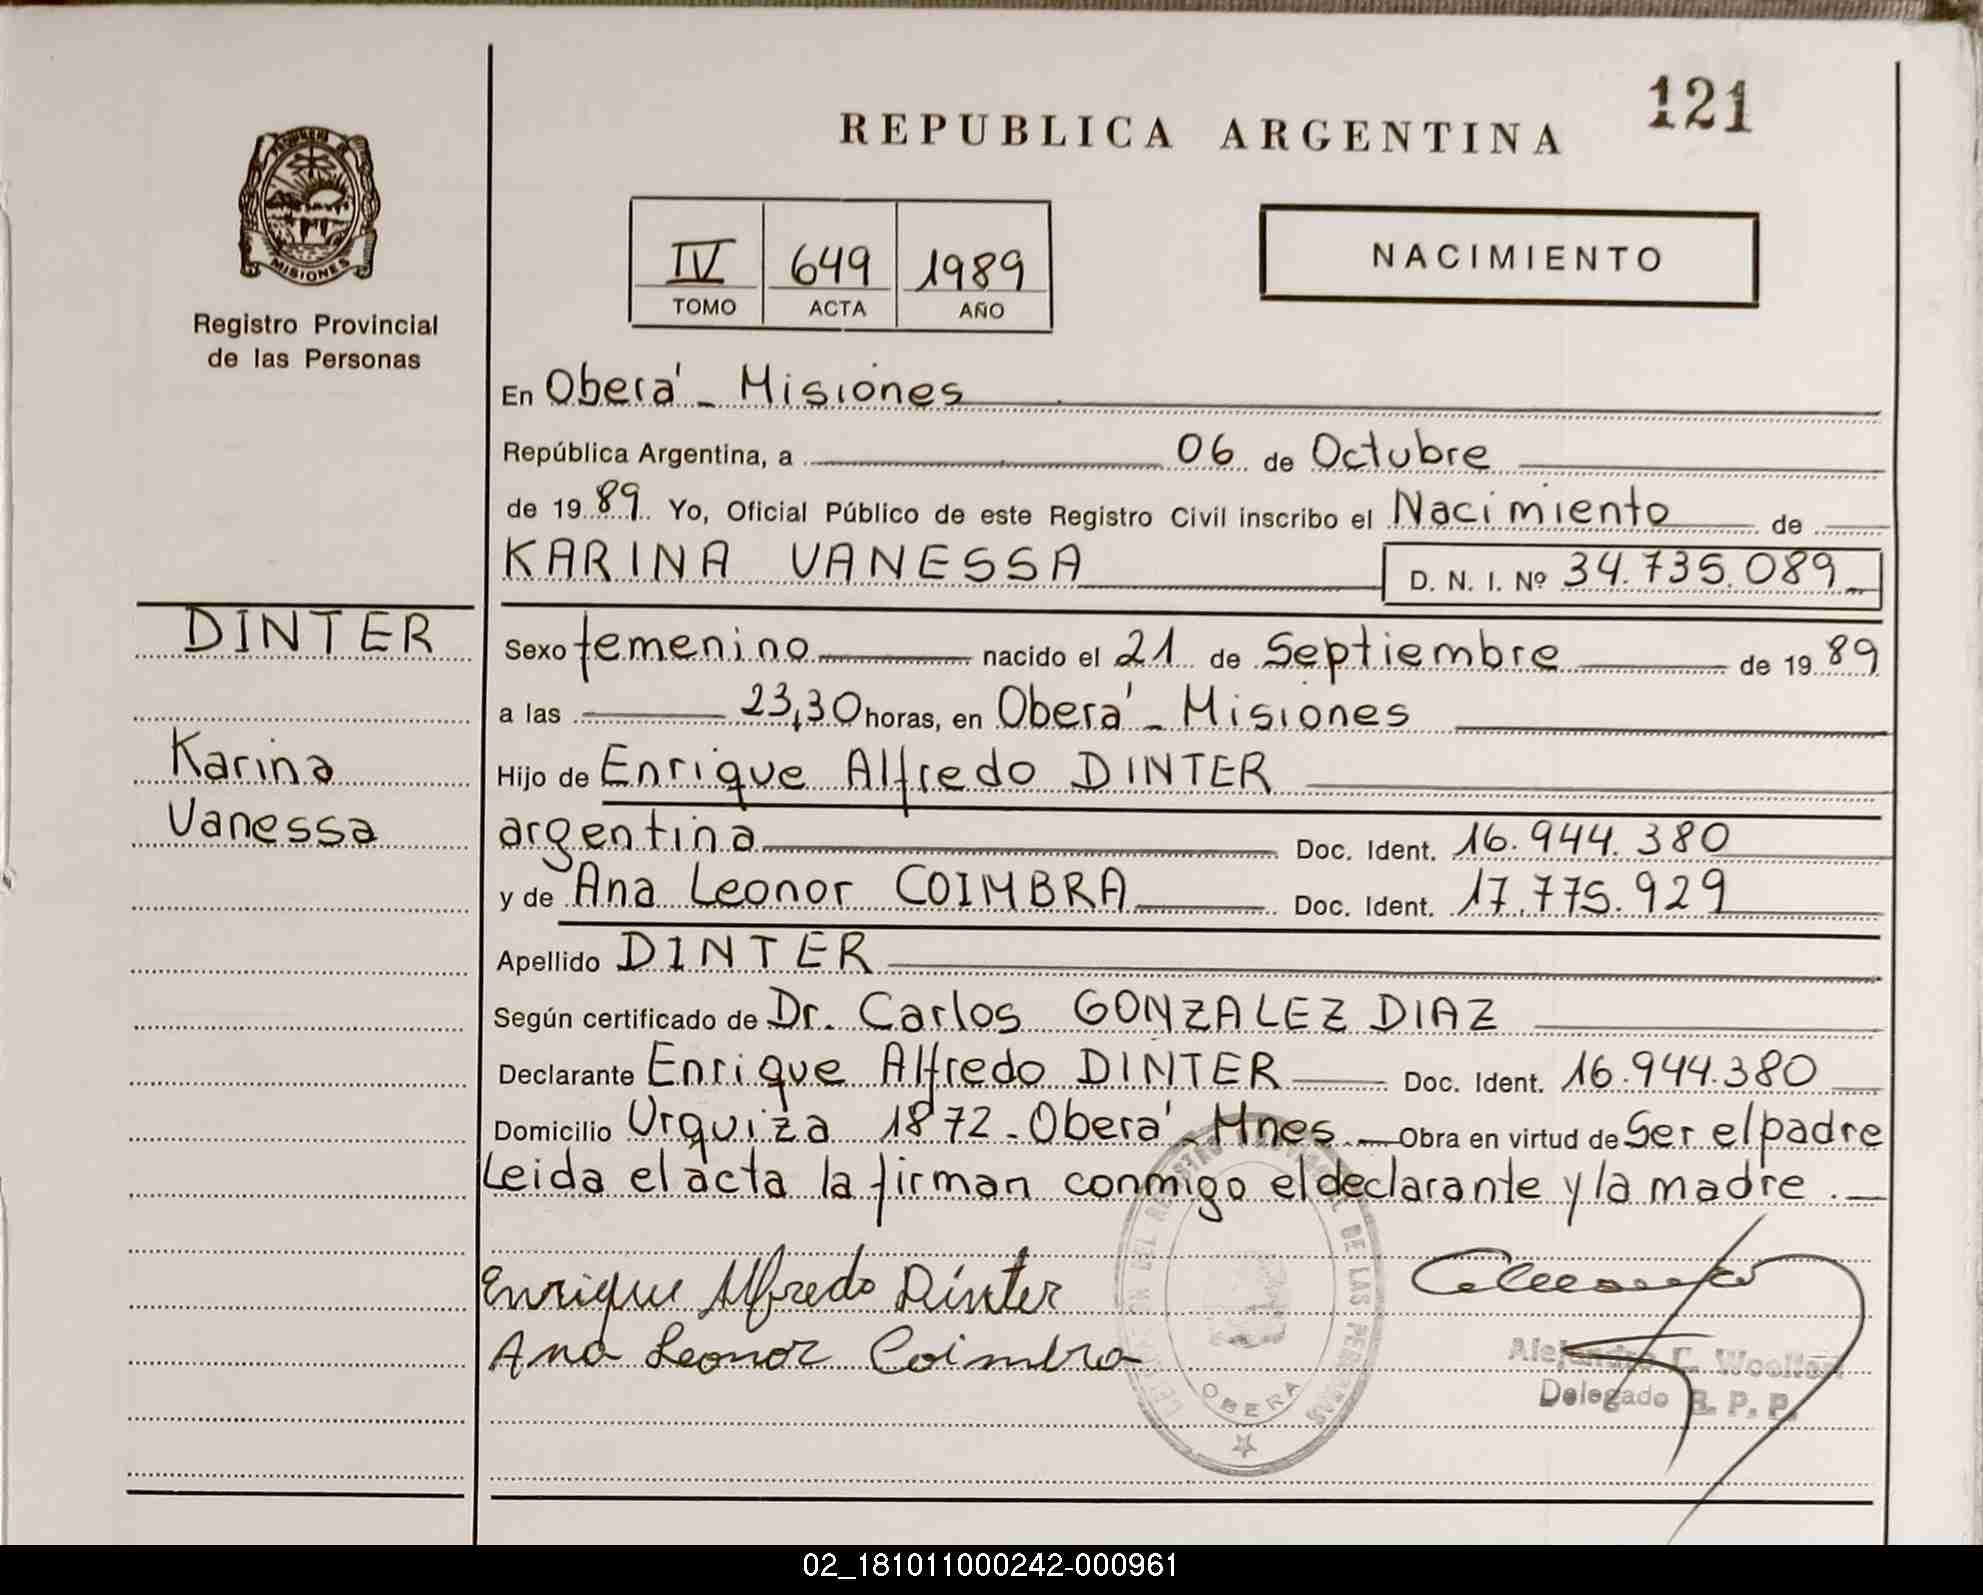 121
REPUBLICA ARGENTINA
MISIONES
Registro Provincial
de las Personas
IV 649 1989
TOMO ACTA AÑO
NACIMIENTO
En Oberá - Misiones
República Argentina, a 06 de Octubre
de 1989 Yo, Oficial Público de este Registro Civil inscribo el Nacimiento de
KARINA VANESSA D. N. I. Nº 34.735.089
DINTER
Karina
Vanessa
Sexo femenino nacido el 21 de Septiembre de 1989
a las 23,30 horas, en Oberá - Misiones
Hijo de Enrique Alfredo DINTER
argentina Doc. Ident. 16.944.380
y de Ana Leonor COIMBRA Doc. Ident. 17.775.929
Apellido DINTER
Según certificado de Dr. Carlos GONZALEZ DIAZ
Declarante Enrique Alfredo DINTER Doc. Ident. 16.944.380
Domicilio Urquiza 1872 - Oberá - Mnes. Obra en virtud de Ser el padre
Leida el acta la firman conmigo el declarante y la madre.
Enrique Alfredo Dinter
Ana Leonor Coimbra
DEL REGISTRO PROVINCIAL DE LAS PERSONAS
OBERA
Alejandro C.
Delegado R. P. P.
02_181011000242-000961